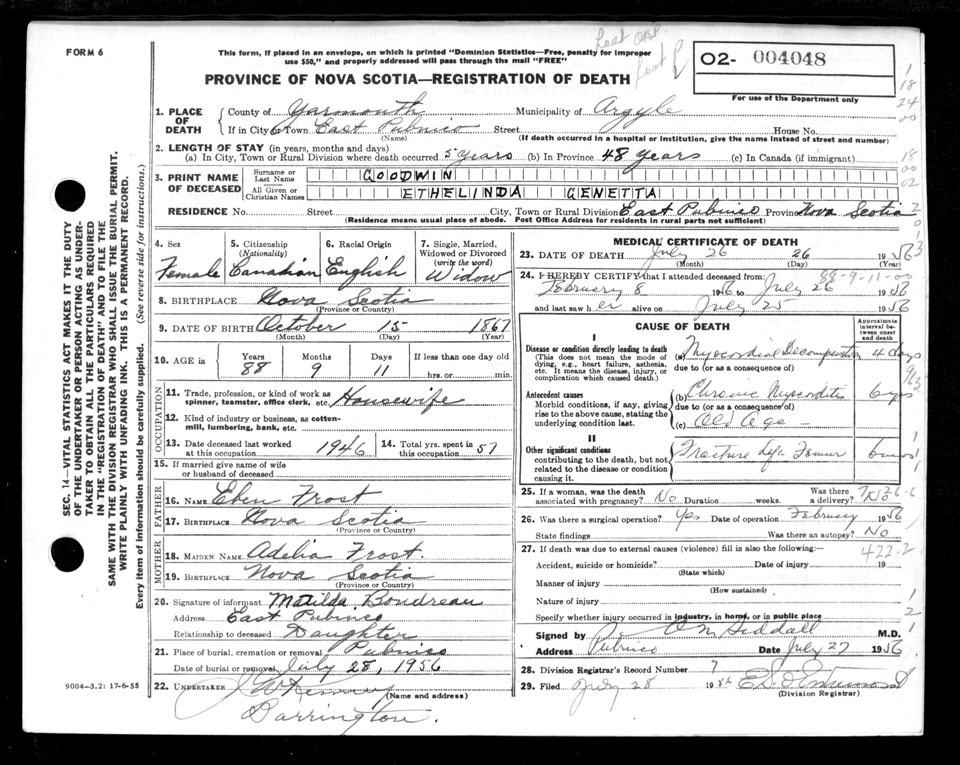 FORM 6
This form, if placed in an envelope, on which is printed "Dominion Statistics—Free, penalty for improper
use $50," and properly addressed will pass through the mail "FREE"
PROVINCE OF NOVA SCOTIA—REGISTRATION OF DEATH
02- 004048
For use of the Department only
1. PLACE OF DEATH
County of Yarmouth Municipality of Argyle
If in City or Town East Pubnico Street House No.
(Name) (If death occurred in a hospital or institution, give the name instead of street and number)
2. LENGTH OF STAY (in years, months and days)
(a) In City, Town or Rural Division where death occurred 5 years (b) In Province 48 years (c) In Canada (if immigrant)
3. PRINT NAME OF DECEASED
Surname or Last Name GOODWIN
All Given or Christian Names ETHELINDA GENETTA
RESIDENCE No. Street City, Town or Rural Division East Pubnico Province Nova Scotia
(Residence means usual place of abode. Post Office Address for residents in rural parts not sufficient)
4. Sex Female
5. Citizenship (Nationality) Canadian
6. Racial Origin English
7. Single, Married, Widowed or Divorced (write the word) Widow
8. BIRTHPLACE Nova Scotia
(Province or Country)
9. DATE OF BIRTH October 15 1867
(Month) (Day) (Year)
10. AGE in Years 88 Months 9 Days 11 If less than one day old hrs. or min.
OCCUPATION
11. Trade, profession, or kind of work as spinner, teamster, office clerk, etc. Housewife
12. Kind of industry or business, as cotton-mill, lumbering, bank, etc.
13. Date deceased last worked at this occupation 1946
14. Total yrs. spent in this occupation 57
15. If married give name of wife or husband of deceased
FATHER
16. NAME Eben Frost
17. BIRTHPLACE Nova Scotia
(Province or Country)
MOTHER
18. MAIDEN NAME Adelia Frost.
19. BIRTHPLACE Nova Scotia
(Province or Country)
20. Signature of informant Matilda Boudreau
Address East Pubnico
Relationship to deceased Daughter
21. Place of burial, cremation or removal Pubnico
Date of burial or removal July 28, 1956
22. UNDERTAKER
(Name and address)
Barrington.
9004—3.2: 17-6-55
MEDICAL CERTIFICATE OF DEATH
23. DATE OF DEATH July 26 26 1956
(Month) (Day) (Year)
24. I HEREBY CERTIFY that I attended deceased from: 88-9-11-00
February 8 1956 to July 26 1956
and last saw her alive on July 25 1956
CAUSE OF DEATH
Approximate interval between onset and death
I
Disease or condition directly leading to death
(This does not mean the mode of dying, e.g., heart failure, asthenia, etc. It means the disease, injury, or complication which caused death.)
(a) Myocordial Decompensation 4 days
due to (or as a consequence of)
Antecedent causes
Morbid conditions, if any, giving rise to the above cause, stating the underlying condition last.
(b) Chronic Myocorditis 6 yrs
due to (or as a consequence of)
(c) Old Age -
II
Other significant conditions
contributing to the death, but not related to the disease or condition causing it.
Fracture left Femur 6 mos
25. If a woman, was the death associated with pregnancy? No Duration weeks. Was there a delivery? No
26. Was there a surgical operation? Yes Date of operation February 1956
State findings Was there an autopsy? No
27. If death was due to external causes (violence) fill in also the following:— 422.2
Accident, suicide or homicide? Date of injury 19
(State which)
Manner of injury
(How sustained)
Nature of injury
Specify whether injury occurred in industry, in home, or in public place
Signed by Siddall M.D.
Address Pubnico Date July 27 1956
28. Division Registrar's Record Number 7
29. Filed July 28
(Division Registrar)
SEC. 14—VITAL STATISTICS ACT MAKES IT THE DUTY
OF THE UNDERTAKER OR PERSON ACTING AS UNDER-
TAKER TO OBTAIN ALL THE PARTICULARS REQUIRED
IN THE "REGISTRATION OF DEATH" AND TO FILE THE
SAME WITH THE DIVISION REGISTRAR WHO SHALL ISSUE THE BURIAL PERMIT.
WRITE PLAINLY WITH UNFADING INK. THIS IS A PERMANENT RECORD.
Every item of information should be carefully supplied. (See reverse side for instructions.)